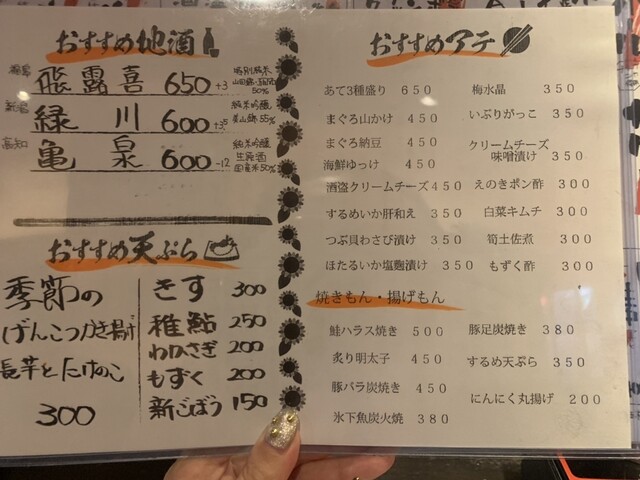 おすすめ地酒
福島 飛露喜 650 +3 特別純米 山田錦・五百万石 50%
新潟 緑川 600 +5 純米吟醸 美山錦 55%
高知 亀泉 600 -12 純米吟醸 生原酒 国産米50%
おすすめ天ぷら
季節の
げんこつかき揚げ
長芋とたけのこ
300
きす 300
稚鮎 250
わかさぎ 200
もずく 200
新ごぼう 150
おすすめアテ
あて3種盛り 650
まぐろ山かけ 450
まぐろ納豆 450
海鮮ゆっけ 450
酒盗クリームチーズ 450
するめいか肝和え 350
つぶ貝わさび漬け 350
ほたるいか塩麹漬け 350
梅水晶 350
いぶりがっこ 350
クリームチーズ
味噌漬け 350
えのきポン酢 300
白菜キムチ 300
筍土佐煮 300
もずく酢 300
焼きもん・揚げもん
鮭ハラス焼き 500
炙り明太子 450
豚バラ炭焼き 450
氷下魚炭火焼 380
豚足炭焼き 380
するめ天ぷら 350
にんにく丸揚げ 200